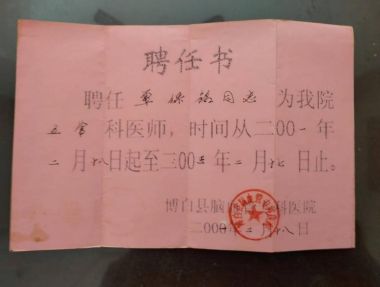 聘任书
聘任 同志 为我院
五官科医师,时间从二00一年
二月十八日起至二00 年二月十七日止。
博白县脑 科医院
二00 年二月十八日